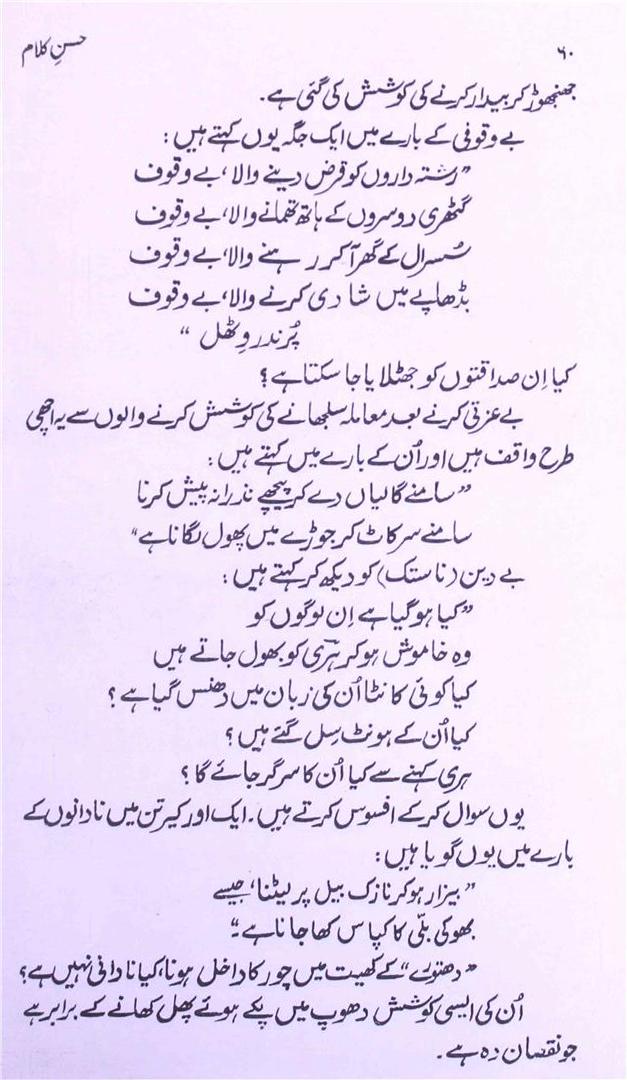 ۶۰ حسنِ کلام
جھنجھوڑ کر بیدار کرنے کی کوشش کی گئی ہے۔
بے وقوفی کے بارے میں ایک جگہ یوں کہتے ہیں:
”رشتہ داروں کو قرض دینے والا، بے وقوف
گٹھری دوسروں کے ہاتھ تھمانے والا، بے وقوف
سُسرال کے گھر آ کر رہنے والا، بے وقوف
بڈھاپے میں شادی کرنے والا، بے وقوف
پُرندر وِٹھل “
کیا اِن صداقتوں کو جھٹلایا جا سکتا ہے؟
بے عزتی کرنے بعد معاملہ سلجھانے کی کوشش کرنے والوں سے یہ اچھی
طرح واقف ہیں اور اُن کے بارے میں کہتے ہیں:
”سامنے گالیاں دے کر پیچھے نذرانہ پیش کرنا
سامنے سر کاٹ کر جوڑے میں پھول لگانا ہے“
بے دین (ناستک) کو دیکھ کر کہتے ہیں:
”کیا ہو گیا ہے اِن لوگوں کو
وہ خاموش ہو کر ہری کو بھول جاتے ہیں
کیا کوئی کانٹا اُن کی زبان میں دھنس گیا ہے؟
کیا اُن کے ہونٹ سِل گئے ہیں؟
ہری کہنے سے کیا اُن کا سر گر جائے گا؟
یوں سوال کر کے افسوس کرتے ہیں۔ ایک اور کیرتن میں نادانوں کے
بارے میں یوں گویا ہیں:
”بیزار ہو کر نازک بیل پر لیٹنا، جیسے
بھوکی بلّی کا کپاس کھا جانا ہے۔“
”دھتورے“ کے کھیت میں چور کا داخل ہونا، کیا نادانی نہیں ہے؟
اُن کی ایسی کوشش دھوپ میں پکے ہوئے پھل کھانے کے برابر ہے
جو نقصان دہ ہے۔